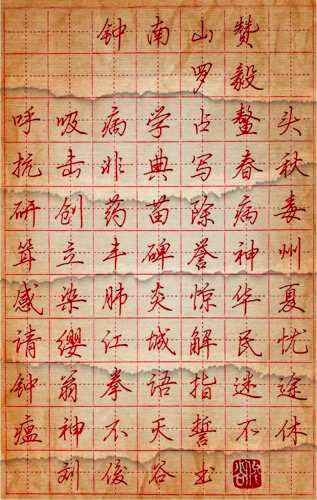 钟南山赞
罗毅
呼吸病学占鳌头
抗击非典写春秋
研创药苗除病毒
耸立丰碑誉神州
感染肺炎惊华夏
请缨江城解民忧
钟翁拳语指迷途
瘟神不灭誓不休
刘俊谷书